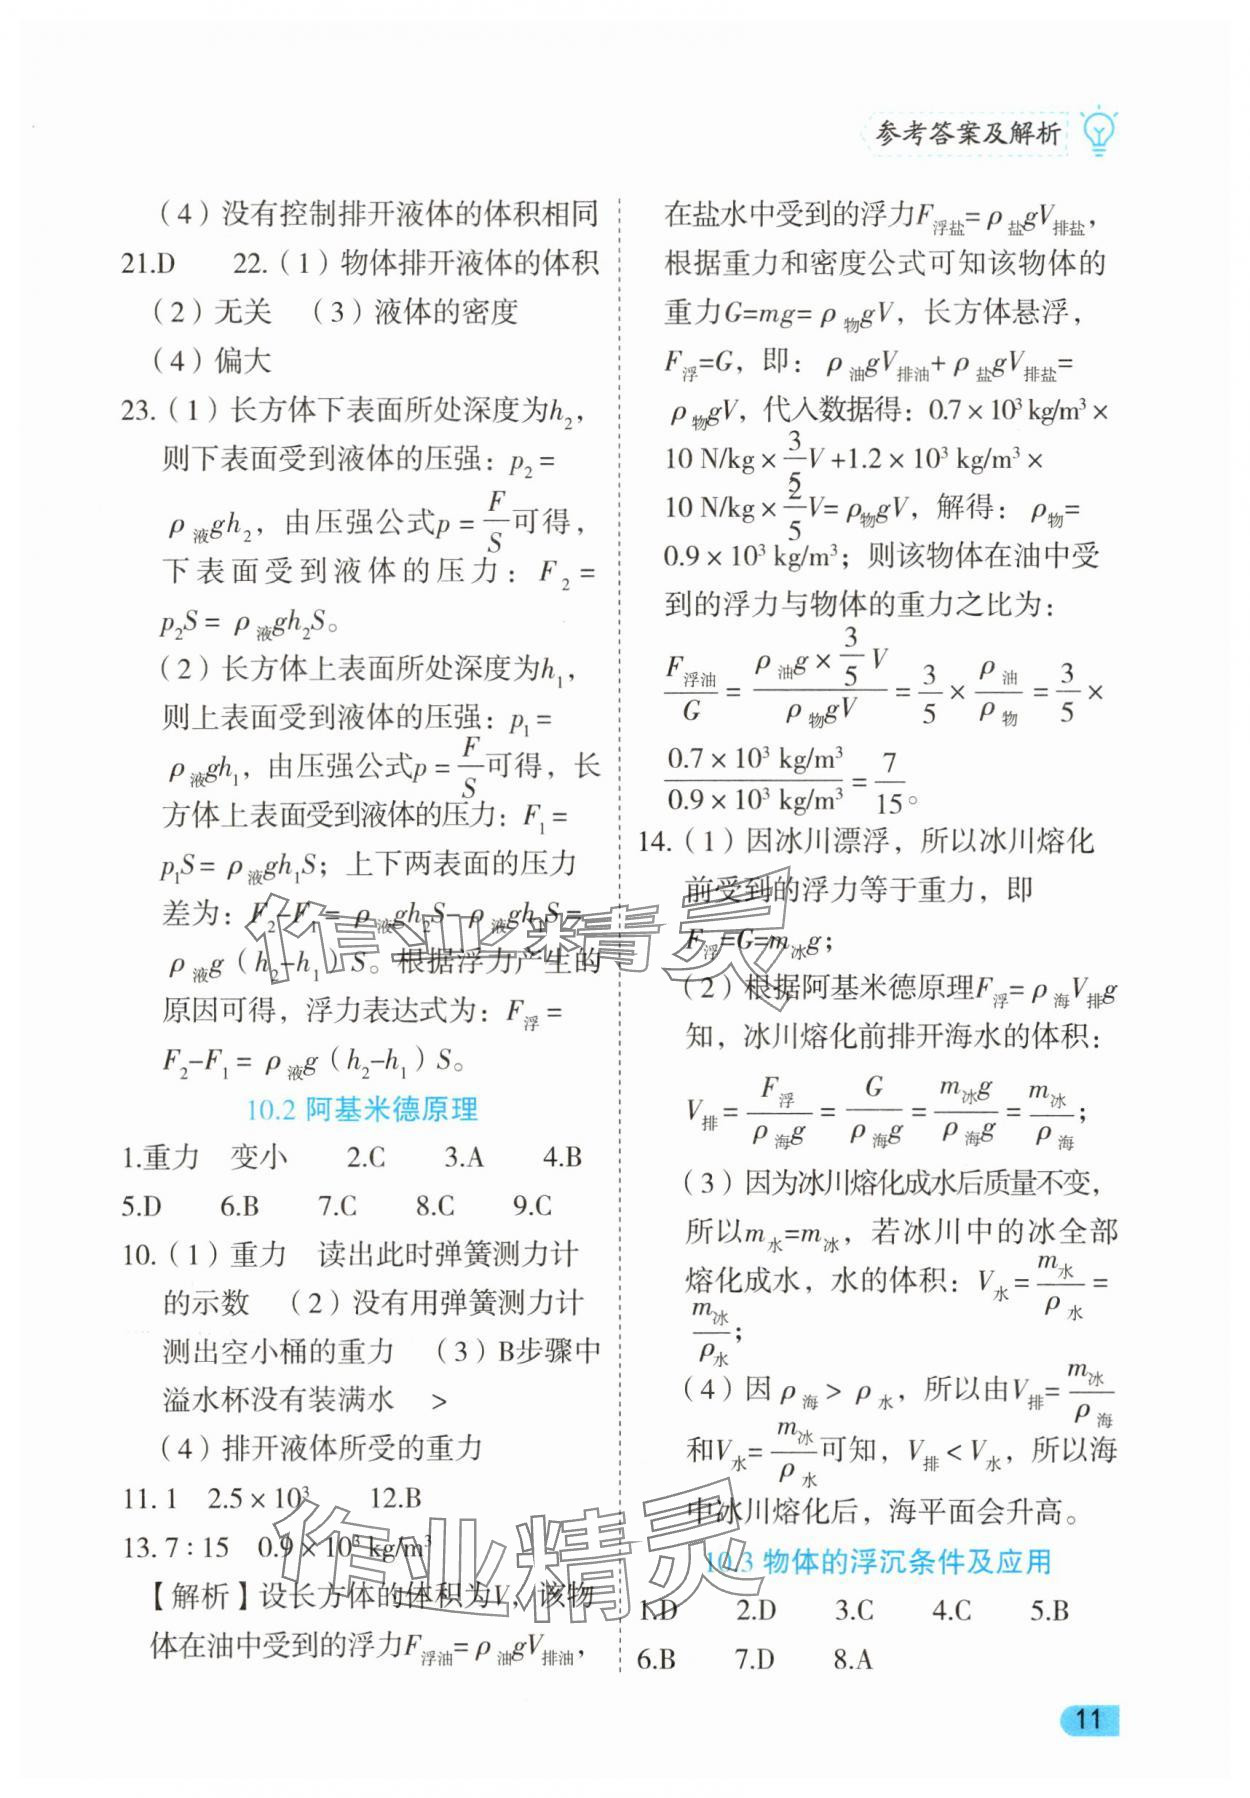 参考答案及解析
（4）没有控制排开液体的体积相同
21.D　22.（1）物体排开液体的体积
（2）无关　（3）液体的密度
（4）偏大
23.（1）长方体下表面所处深度为h₂，
则下表面受到液体的压强：p₂ =
ρ液gh₂，由压强公式p = F/S可得，
下表面受到液体的压力：F₂ =
p₂S = ρ液gh₂S。
（2）长方体上表面所处深度为h₁，
则上表面受到液体的压强：p₁ =
ρ液gh₁，由压强公式p = F/S可得，长
方体上表面受到液体的压力：F₁ =
p₁S = ρ液gh₁S；上下两表面的压力
差为：F₂-F₁ = ρ液gh₂S-ρ液gh₁S =
ρ液g（h₂-h₁）S。根据浮力产生的
原因可得，浮力表达式为：F浮 =
F₂-F₁ = ρ液g（h₂-h₁）S。
10.2 阿基米德原理
1.重力　变小　2.C　3.A　4.B
5.D　6.B　7.C　8.C　9.C
10.（1）重力　读出此时弹簧测力计
的示数　（2）没有用弹簧测力计
测出空小桶的重力　（3）B步骤中
溢水杯没有装满水　>
（4）排开液体所受的重力
11. 1　2.5 × 10³　12.B
13. 7 : 15　0.9 × 10³ kg/m³
【解析】设长方体的体积为V，该物
体在油中受到的浮力F浮油= ρ油gV排油，
在盐水中受到的浮力F浮盐= ρ盐gV排盐，
根据重力和密度公式可知该物体的
重力G=mg= ρ物gV，长方体悬浮，
F浮=G，即：ρ油gV排油+ ρ盐gV排盐=
ρ物gV，代入数据得：0.7 × 10³ kg/m³ ×
10 N/kg × 3/5 V +1.2 × 10³ kg/m³ ×
10 N/kg × 2/5 V= ρ物gV，解得：ρ物=
0.9 × 10³ kg/m³；则该物体在油中受
到的浮力与物体的重力之比为：
F浮油/G = (ρ油g × 3/5 V)/(ρ物gV) = 3/5 × ρ油/ρ物 = 3/5 ×
(0.7 × 10³ kg/m³)/(0.9 × 10³ kg/m³) = 7/15。
14.（1）因冰川漂浮，所以冰川熔化
前受到的浮力等于重力，即
F浮=G=m冰g；
（2）根据阿基米德原理F浮= ρ海V排g
知，冰川熔化前排开海水的体积：
V排 = F浮/(ρ海g) = G/(ρ海g) = m冰g/(ρ海g) = m冰/ρ海；
（3）因为冰川熔化成水后质量不变，
所以m水=m冰，若冰川中的冰全部
熔化成水，水的体积：V水 = m水/ρ水 =
m冰/ρ水；
（4）因ρ海 > ρ水，所以由V排= m冰/ρ海
和V水= m冰/ρ水可知，V排 < V水，所以海
中冰川熔化后，海平面会升高。
10.3 物体的浮沉条件及应用
1.D　2.D　3.C　4.C　5.B
6.B　7.D　8.A
11
作业精灵
作业精灵